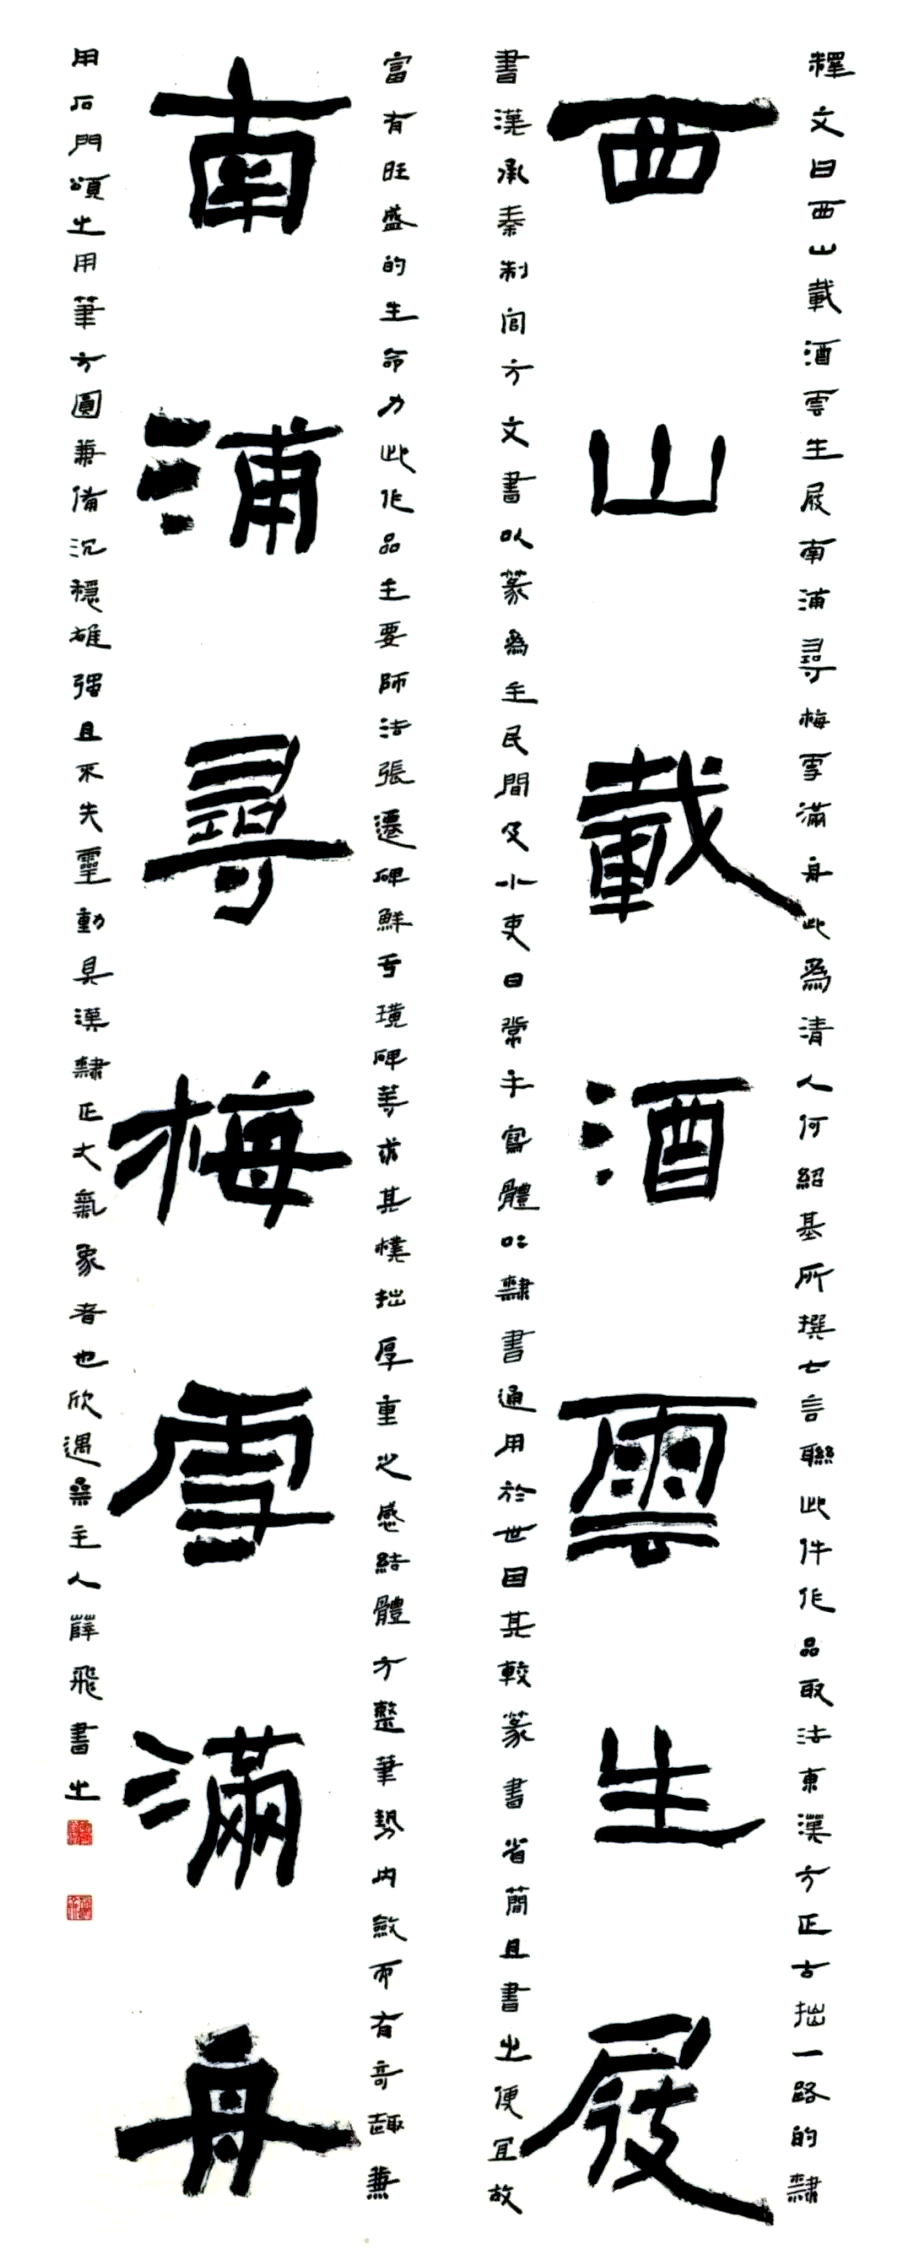 釋文曰西山載酒雲生屐南浦尋梅雪滿舟此為清人何紹基所撰七言聯此件作品取法東漢方正古拙一路的隸
西山載酒雲生屐
書漢承秦制官方文書以篆為主民間及小吏日常手寫體以隸書通用於世因其較篆書省簡且書之便宜故
富有旺盛的生命力此作品主要師法張遷碑鮮于璜碑等求其樸拙厚重之感結體方整筆勢內斂而有奇趣兼
南浦尋梅雪滿舟
用石門頌之用筆方圓兼備沉穩雄強且不失靈動具漢隸正大氣象者也欣遇桑主人薛飛書之